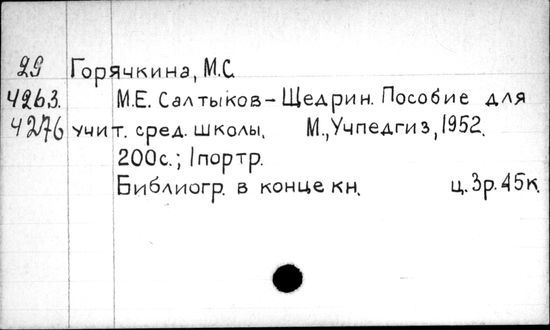 29 Горячкина, М.С.
4263. М.Е. Салтыков-Щедрин. Пособие для
4276 учит. сред. школы. М., Учпедгиз, 1952.
200с.; 1портр.
Библиогр. в конце кн. ц. 3р. 45к.